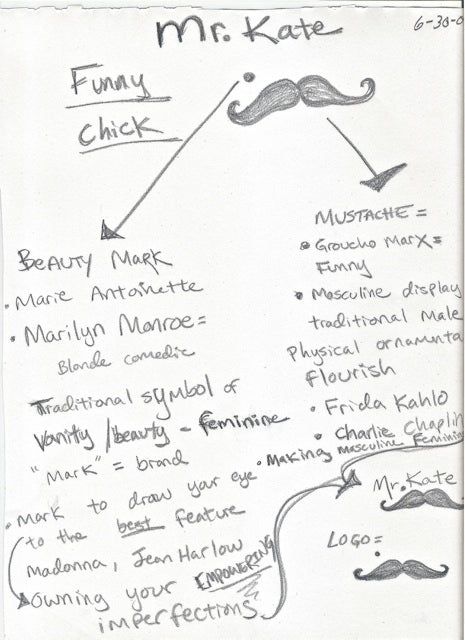 Mr. Kate
6-30-0
Funny
Chick
BEAUTY MARK
• Marie Antoinette
• Marilyn Monroe =
Blonde comedic
Traditional symbol of
vanity/beauty - feminine
"Mark" = brand
• Mark to draw your eye
to the best feature
Madonna, Jean Harlow
Owning your EMPOWERING
imperfections
MUSTACHE =
• Groucho Marx =
Funny
• Masculine display
traditional male
physical ornamenta
flourish
• Frida Kahlo
• Charlie Chaplin
• Making masculine Feminin
Mr. Kate
LOGO =